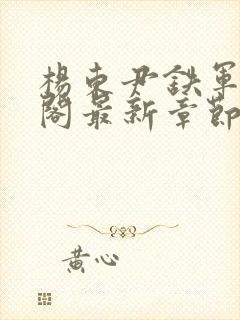 楊東尹鉄軍
閣最新章節
黃心